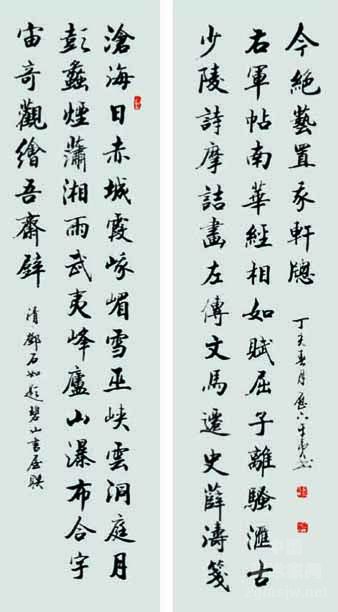 滄海日赤城霞峨嵋雪巫峽雲洞庭月
彭蠡煙瀟湘雨武夷峰廬山瀑布合宇
宙奇觀繪吾齋壁
清鄧石如題碧山書屋聯
少陵詩摩詰畫左傳文馬遷史薛濤箋
右軍帖南華經相如賦屈子離騷滙古
今絕藝置我軒牕
丁亥春月